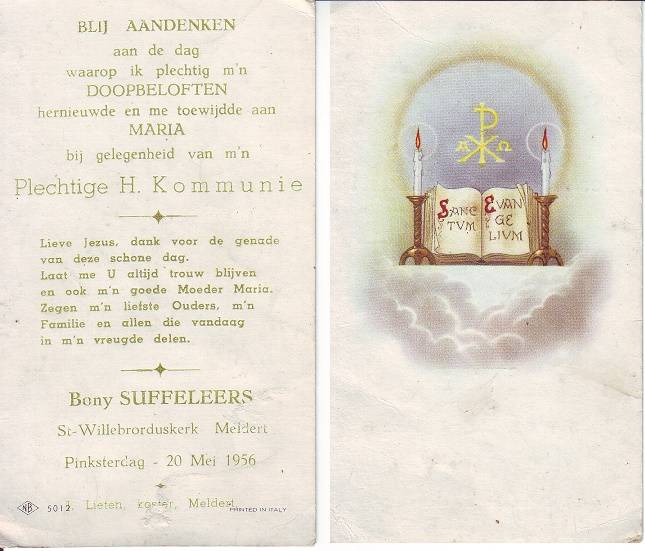 BLIJ AANDENKEN
aan de dag
waarop ik plechtig m'n
DOOPBELOFTEN
hernieuwde en me toewijdde aan
MARIA
bij gelegenheid van m'n
Plechtige H. Kommunie
Lieve Jezus, dank voor de genade
van deze schone dag.
Laat me U altijd trouw blijven
en ook m'n goede Moeder Maria.
Zegen m'n liefste Ouders, m'n
Familie en allen die vandaag
in m'n vreugde delen.
Bony SUFFELEERS
St-Willebrorduskerk Meldert
Pinksterdag - 20 Mei 1956
NB 5012 Lieten, koster, Meldert PRINTED IN ITALY
Α Ω
SANC
TVM
EVAN
GE
LIVM